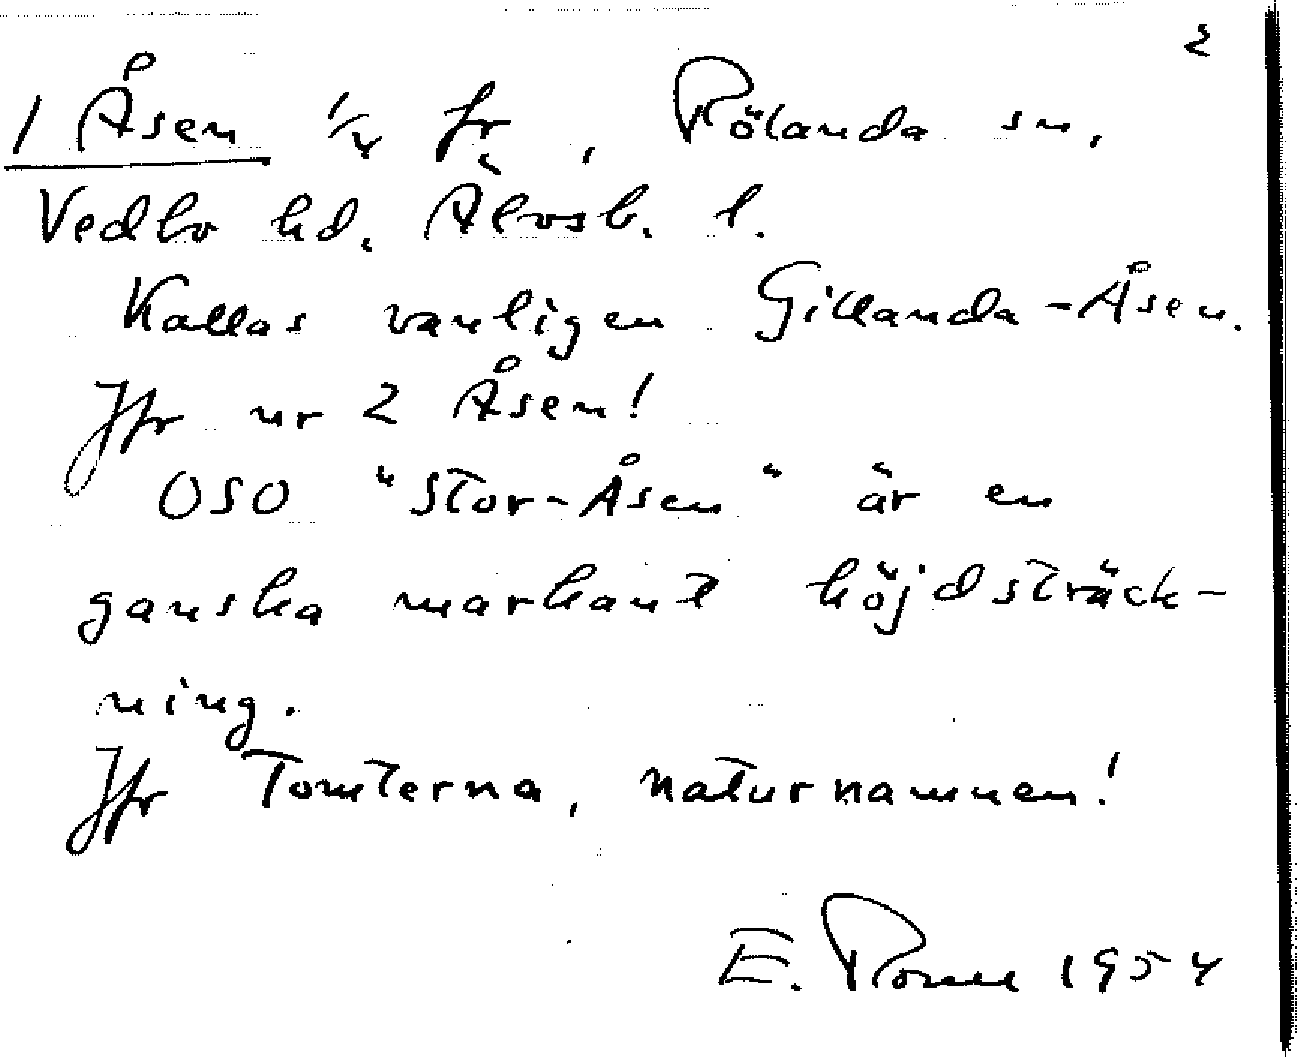 2
1 Åsen 1/4 fr, Rölanda sn,
Vedbo hd. Älvsb. l.
Kallas vanligen Gillanda-Åsen.
Jfr nr 2 Åsen!
OSO "Stor-Åsen" är en
ganska markant höjdsträck-
ning.
Jfr Tomterna, naturnamnen!
E. 1954